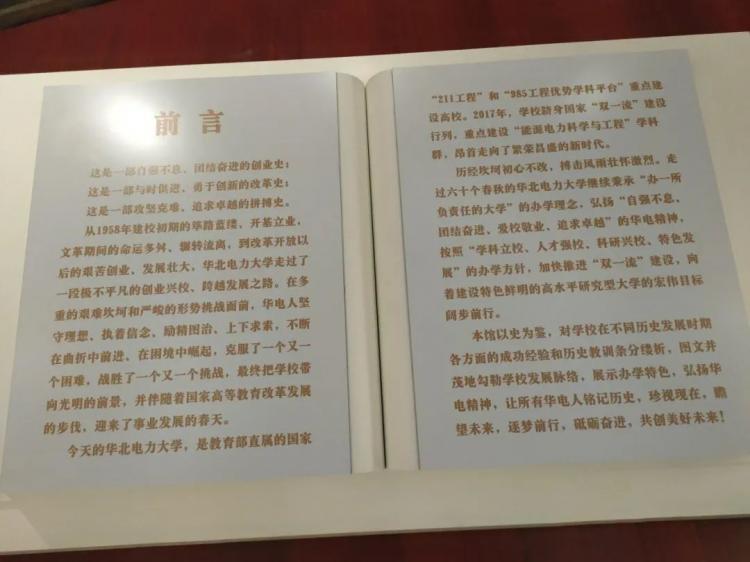 前言
这是一部自强不息、团结奋进的创业史；
这是一部与时俱进、勇于创新的改革史；
这是一部攻坚克难、追求卓越的拼搏史。
从1958年建校初期的筚路蓝缕、开基立业，
文革期间的命运多舛、辗转流离，到改革开放以
后的艰苦创业、发展壮大，华北电力大学走过了
一段极不平凡的创业兴校、跨越发展之路。在多
重的艰难坎坷和严峻的形势挑战面前，华电人坚
守理想、执着信念、励精图治、上下求索，不断
在曲折中前进、在困境中崛起，克服了一个又一
个困难，战胜了一个又一个挑战，最终把学校带
向光明的前景，并伴随着国家高等教育改革发展
的步伐，迎来了事业发展的春天。
今天的华北电力大学，是教育部直属的国家
“211工程”和“985工程优势学科平台”重点建
设高校。2017年，学校跻身国家“双一流”建设
行列，重点建设“能源电力科学与工程”学科
群，昂首走向了繁荣昌盛的新时代。
历经坎坷初心不改，搏击风雨壮怀激烈。走
过六十个春秋的华北电力大学继续秉承“办一所
负责任的大学”的办学理念，弘扬“自强不息、
团结奋进、爱校敬业、追求卓越”的华电精神，
按照“学科立校、人才强校、科研兴校、特色发
展”的办学方针，加快推进“双一流”建设，向
着建设特色鲜明的高水平研究型大学的宏伟目标
阔步前行。
本馆以史为鉴，对学校在不同历史发展时期
各方面的成功经验和历史教训条分缕析，图文并
茂地勾勒学校发展脉络，展示办学特色，弘扬华
电精神，让所有华电人铭记历史，珍视现在，瞻
望未来，逐梦前行，砥砺奋进，共创美好未来！